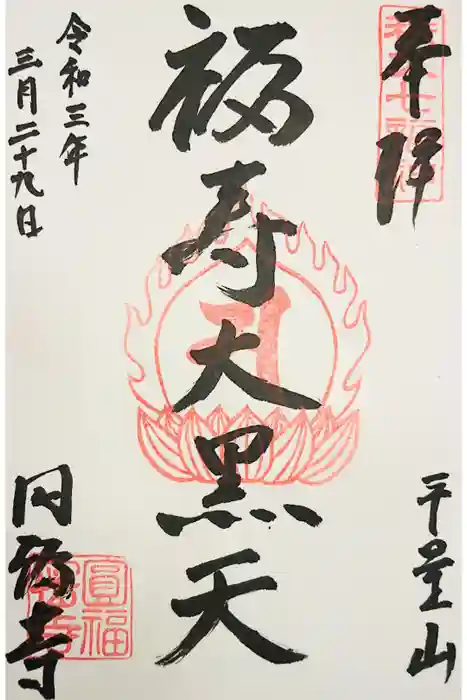 奉拝
千量山
福寿大黒天
令和三年
三月二十九日
円福寺
圓福